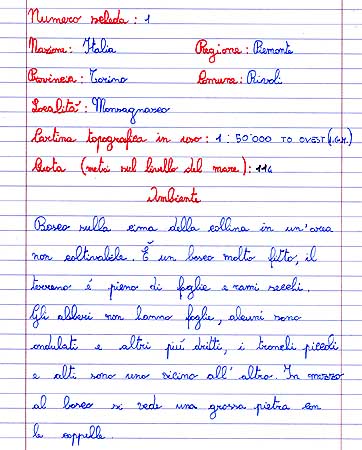 Numero scheda: 1
Nazione: Italia Regione: Piemonte
Provincia: Torino Comune: Rivoli
Località: Monsagnasco
Cartina topografica in uso: 1:50'000 TO OVEST (I.G.M.)
Quota (metri sul livello del mare): 416
Ambiente
Bosco sulla cima della collina in un'area
non coltivabile. È un bosco molto fitto, il
terreno é pieno di foglie e rami secchi.
Gli alberi non hanno foglie, alcuni sono
ondulati e altri piú dritti, i tronchi piccoli
e alti sono uno vicino all'altro. In mezzo
al bosco si vede una grossa pietra con
le coppelle.